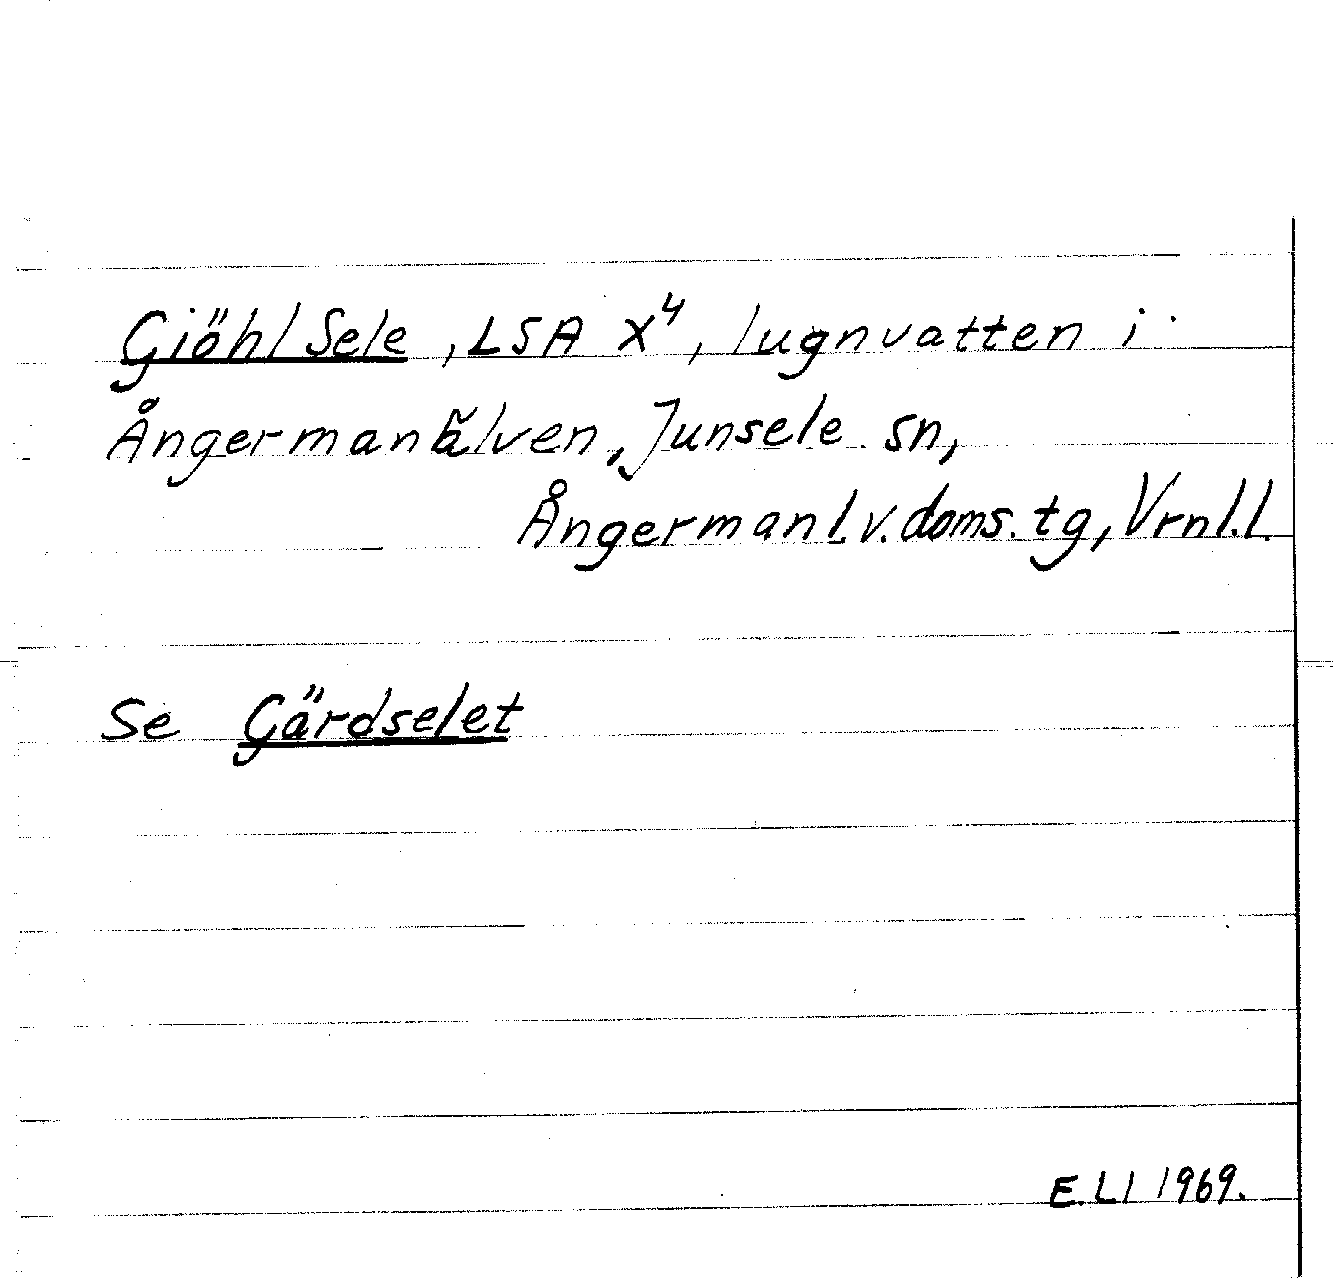 Gjöhl Sele, LSA X⁴, lugnvatten i
Ångermanälven, Junsele sn,
Ångermanl. v. doms. tg, Vrnl. l.
Se Gärdselet
E. LI 1969.